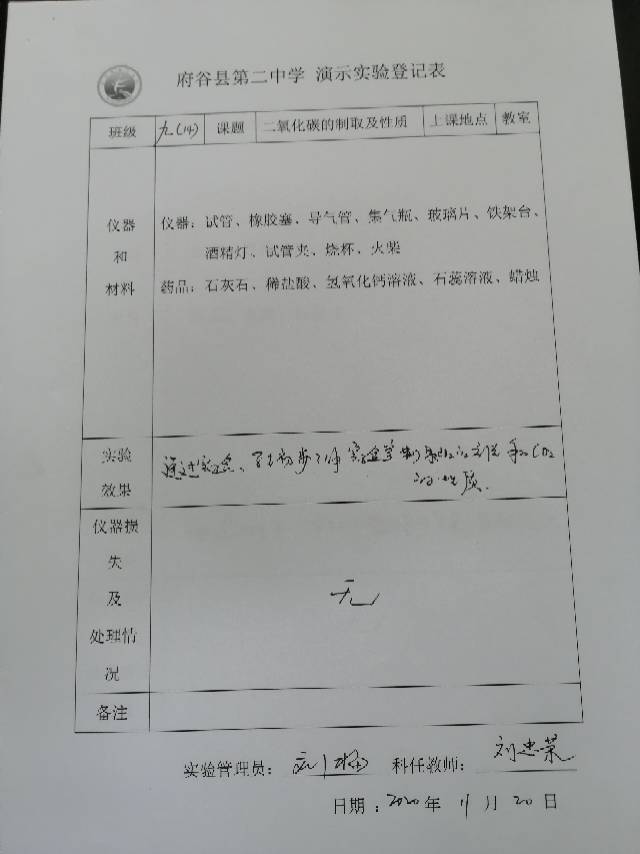 府谷县第二中学 演示实验登记表
班级 九(14) 课题 二氧化碳的制取及性质 上课地点 教室
仪器和材料
仪器：试管、橡胶塞、导气管、集气瓶、玻璃片、铁架台、
酒精灯、试管夹、烧杯、火柴
药品：石灰石、稀盐酸、氢氧化钙溶液、石蕊溶液、蜡烛
实验效果
通过实验、学生初步了解实验室制取CO2的方法和CO2
的性质.
仪器损失及处理情况
无
备注
实验管理员： 科任教师：刘忠荣
日期：2020年 11月 20日